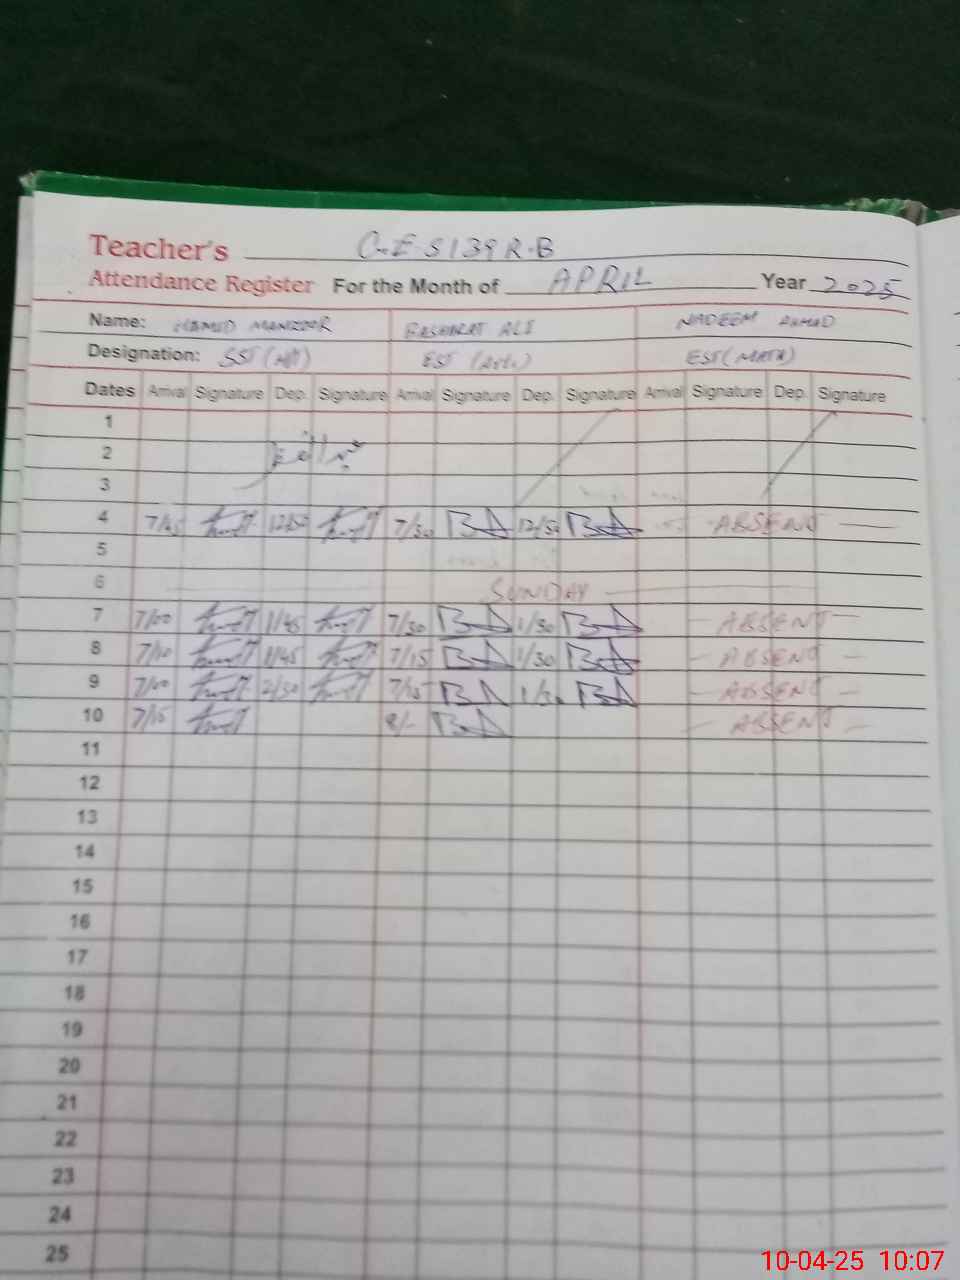 Teacher's G.E.S 139 R.B
Attendance Register For the Month of APRIL Year 2025
Name: HAMID MANZOOR BASHARAT ALI NADEEM AHMAD
Designation: SST EST EST (MATH)
Dates Arrival Signature Dep. Signature Arrival Signature Dep. Signature Arrival Signature Dep. Signature
1
2
3
4 7/45 12/30 7/30 BA 12/30 BA ABSENT
5
6 SUNDAY
7 7/00 1/45 7/30 BA 1/30 BA ABSENT
8 7/10 1/45 7/15 BA 1/30 BA ABSENT
9 7/00 2/30 7/15 BA 1/30 BA ABSENT
10 7/15 8/- BA ABSENT
11
12
13
14
15
16
17
18
19
20
21
22
23
24
25
10-04-25 10:07